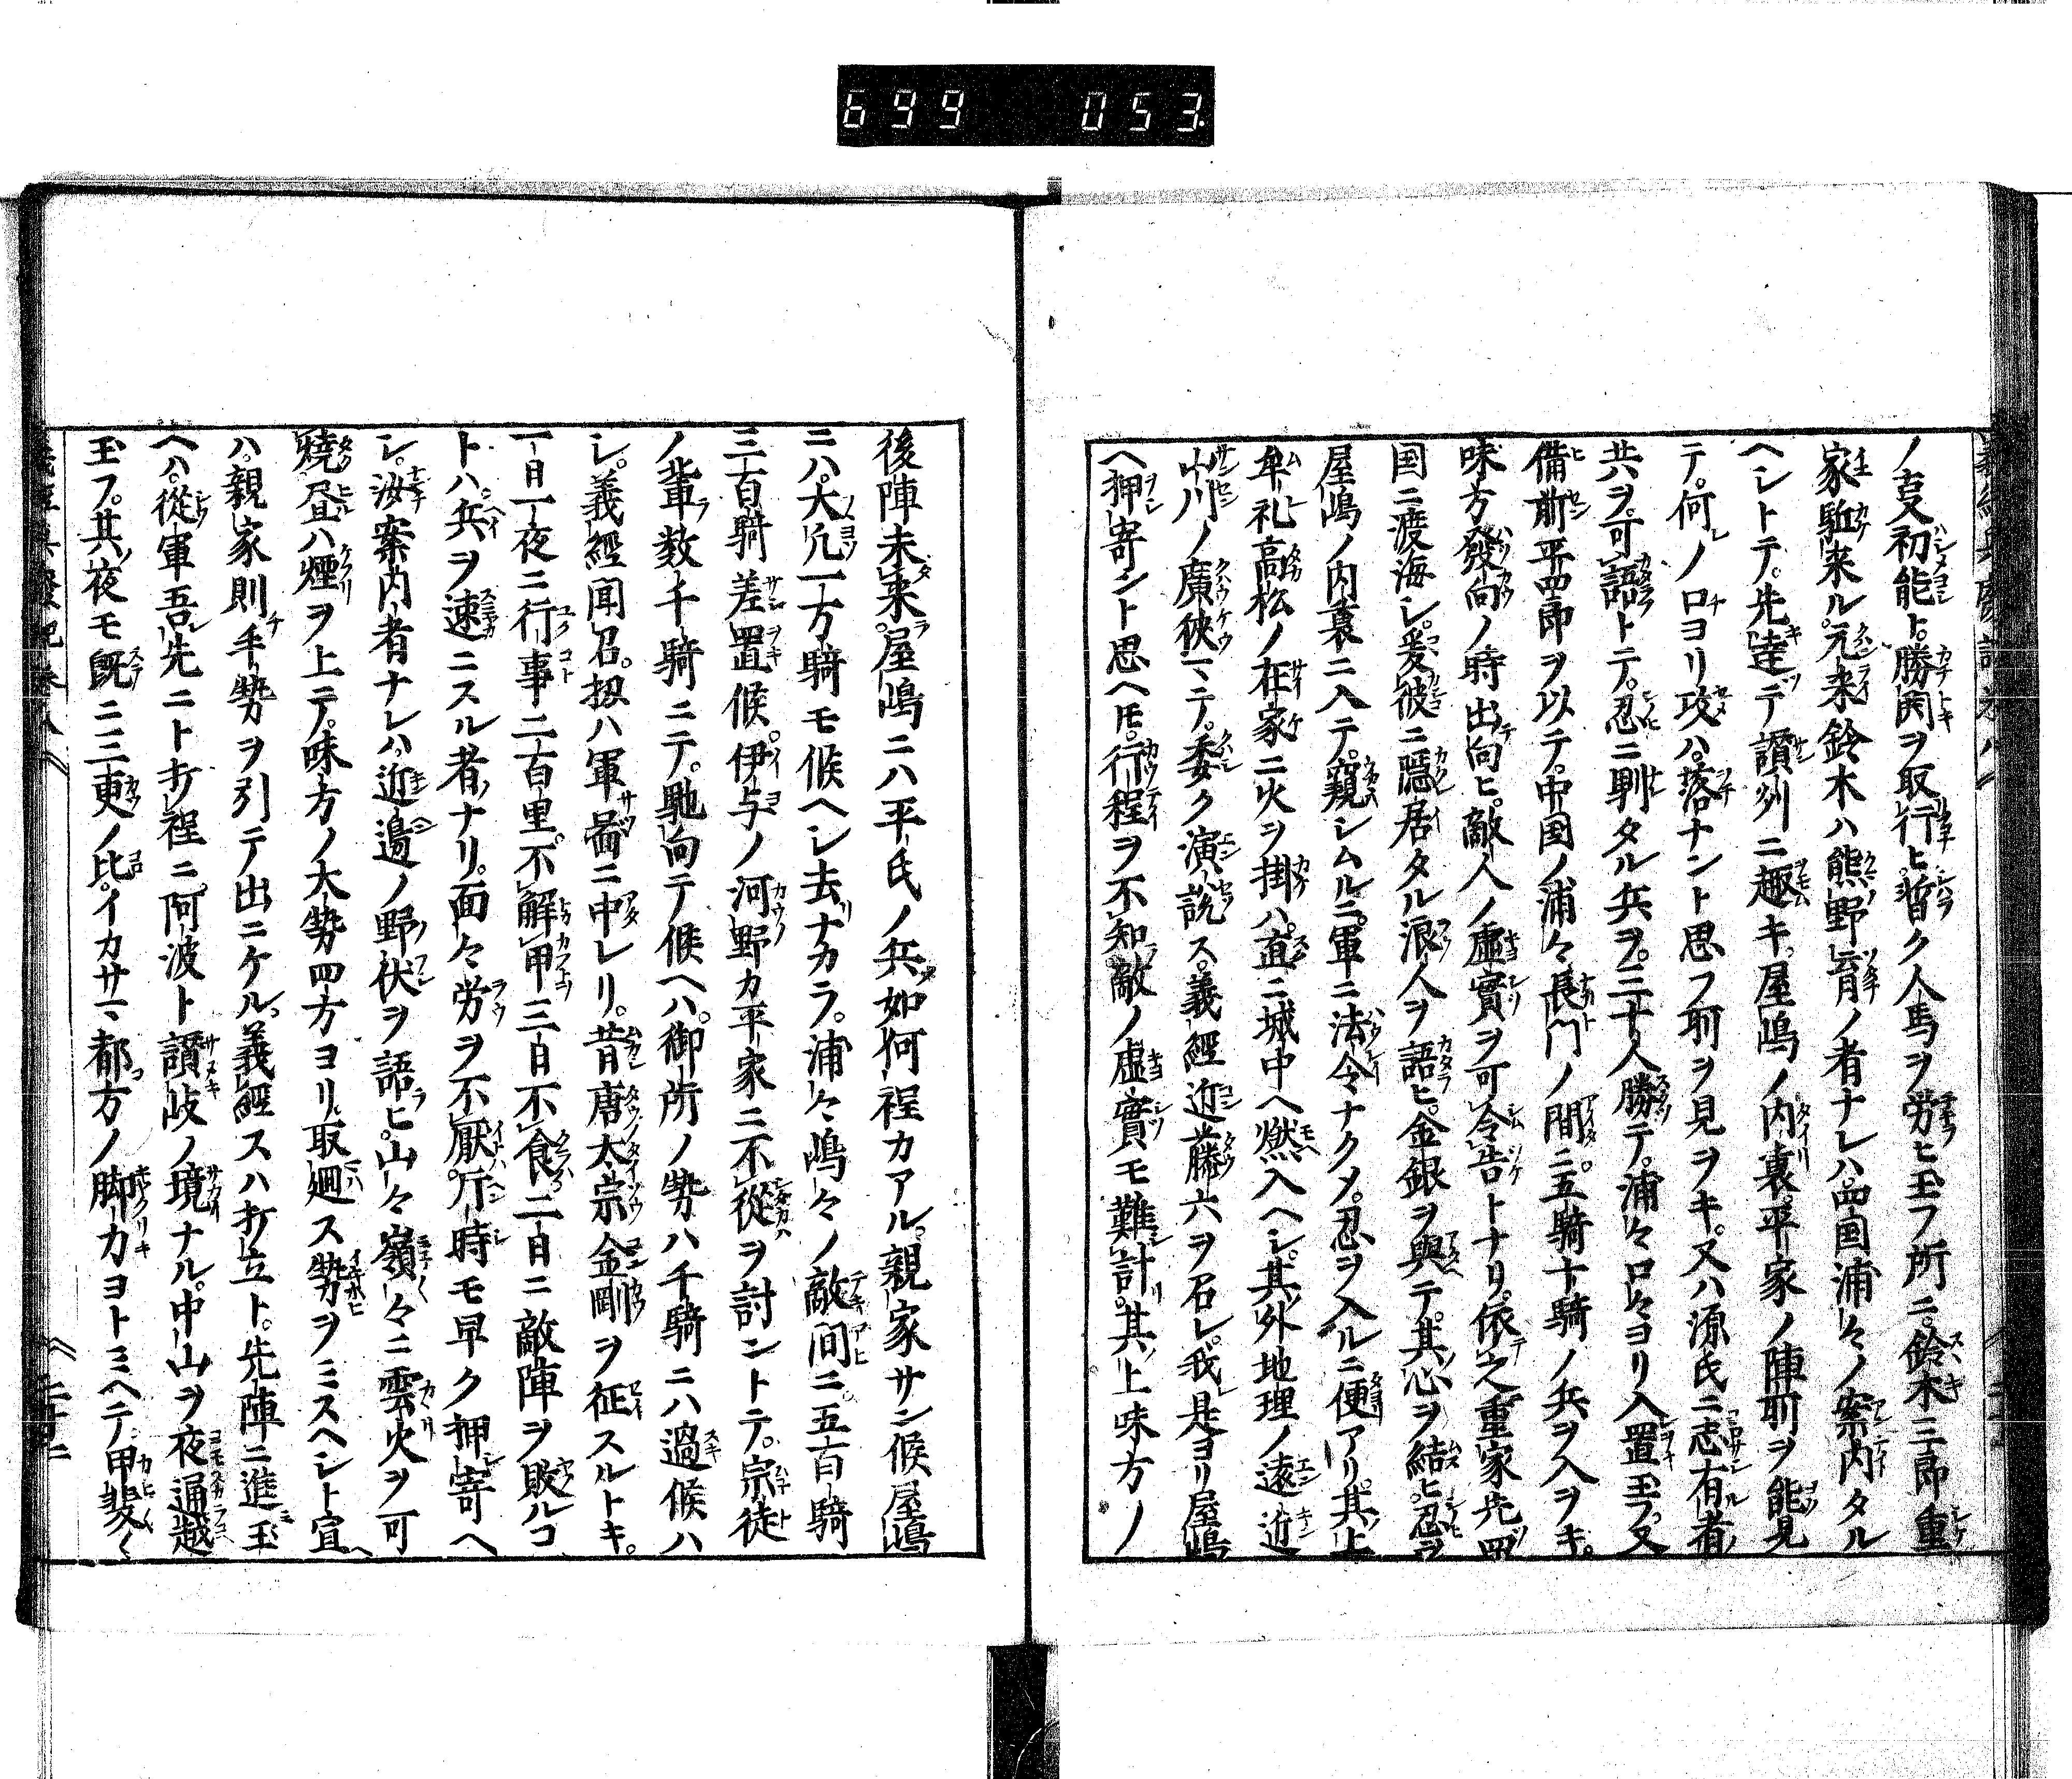 699 053
ノ㕝初能ト。勝閧ヲ取行ヒ。暫ク人馬ヲ労ヒ玉フ所ニ。鈴木三郎重
家駈来ル。元来鈴木ハ熊野育ノ者ナレハ。四国浦々ノ案内タル
ヘシトテ。先達テ讃州ニ趣キ。屋嶋ノ内裏。平家ノ陣所ヲ能見
テ。何ノ口ヨリ攻ハ。落ナント思フ所ヲ見ヲキ。又ハ源氏ニ志有者
共ヲ。可語トテ。忍ニ馴タル兵ヲ。三十人勝テ。浦々口々ヨリ入置玉フ。又
備前平四郎ヲ以テ。中国ノ浦々長門ノ間ニ。五騎十騎ノ兵ヲ入ヲキ。
味方発向ノ時出向ヒ。敵人ノ虚實ヲ可令告トナリ。依之重家先四
国ニ渡海シ。爰彼ニ隠居タル浪人ヲ語ヒ。金銀ヲ與テ。其心ヲ結ヒ。忍ヲ
屋嶋ノ内裏ニ入テ。窺シムルニ。軍ニ法令ナクメ。忍ヲ入ルニ便アリ。其上
牟礼高松ノ在家ニ火ヲ掛ハ。直ニ城中ヘ燃入ヘシ。其外地理ノ遠近
山川ノ廣狹マテ。委ク演説ス。義經近藤六ヲ召レ。我是ヨリ屋嶋
ヘ押寄ント思ヘ𪜈。行程ヲ不知。敵ノ虚實モ難計。其上味方ノ
後陣未来。屋嶋ニハ平氏ノ兵如何程カアル。親家サン候屋嶋
ニハ。大凡一万騎モ候ヘシ。去ナカラ。浦々嶋々ノ敵間ニ。五百騎
三百騎差置候。伊与ノ河野カ平家ニ不從ヲ討ントテ。宗徒
ノ輩数千騎ニテ。馳向テ候ヘハ。御所ノ勢ハ千騎ニハ過候ハ
シ。義經聞召。扨ハ軍畧ニ中レリ。昔唐太宗金剛ヲ征スルトキ。
一日一夜ニ行事二百里。不解甲三日不食二日ニ敵陣ヲ敗ルコ
トハ。兵ヲ速ニスル者ナリ。面々労ヲ不厭。片時モ早ク押寄ヘ
シ。汝案内者ナレハ。近邊ノ野伏ヲ語ヒ。山々嶺々ニ雲火ヲ可
燒。昼ハ煙ヲ上テ。味方ノ大勢四方ヨリ取廻ス勢ヲミスヘシト宣
ハ。親家則手勢ヲ引テ出ニケル。義經スハ打立ト。先陣ニ進玉
ヘハ。從軍吾先ニト打程ニ。阿波ト讃岐ノ境ナル。中山ヲ夜通越
玉フ。其夜モ既ニ三更ノ比。イカサマ都方ノ脚力ヨトミヘテ。甲斐〱